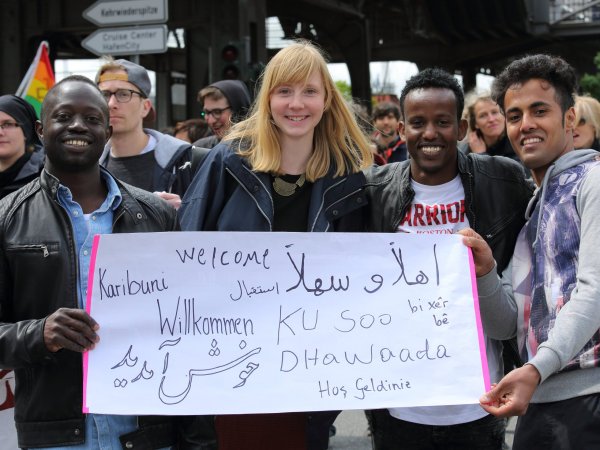 Kehrwiederspitze
Cruise Center
HafenCity
WARRIOR
BOSTON
welcome
Karibuni
اهلاً و سهلاً
استقبال
Willkommen
KU SOO
DHawaada
bi xêr
bê
خوش آمدید
Hoş Geldiniz